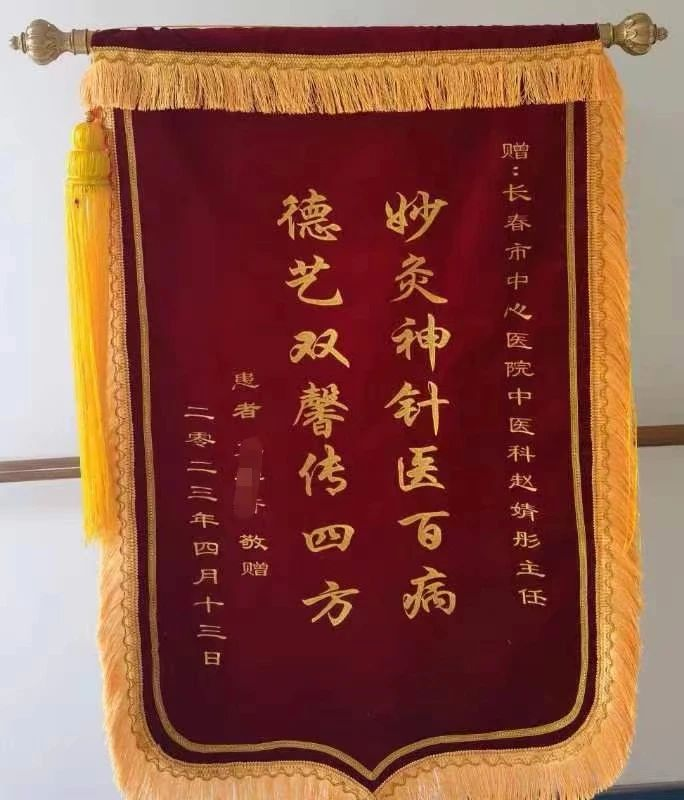 赠：长春市中心医院中医科赵婧彤主任
妙灸神针医百病
德艺双馨传四方
患者 敬赠
二零二三年四月十三日